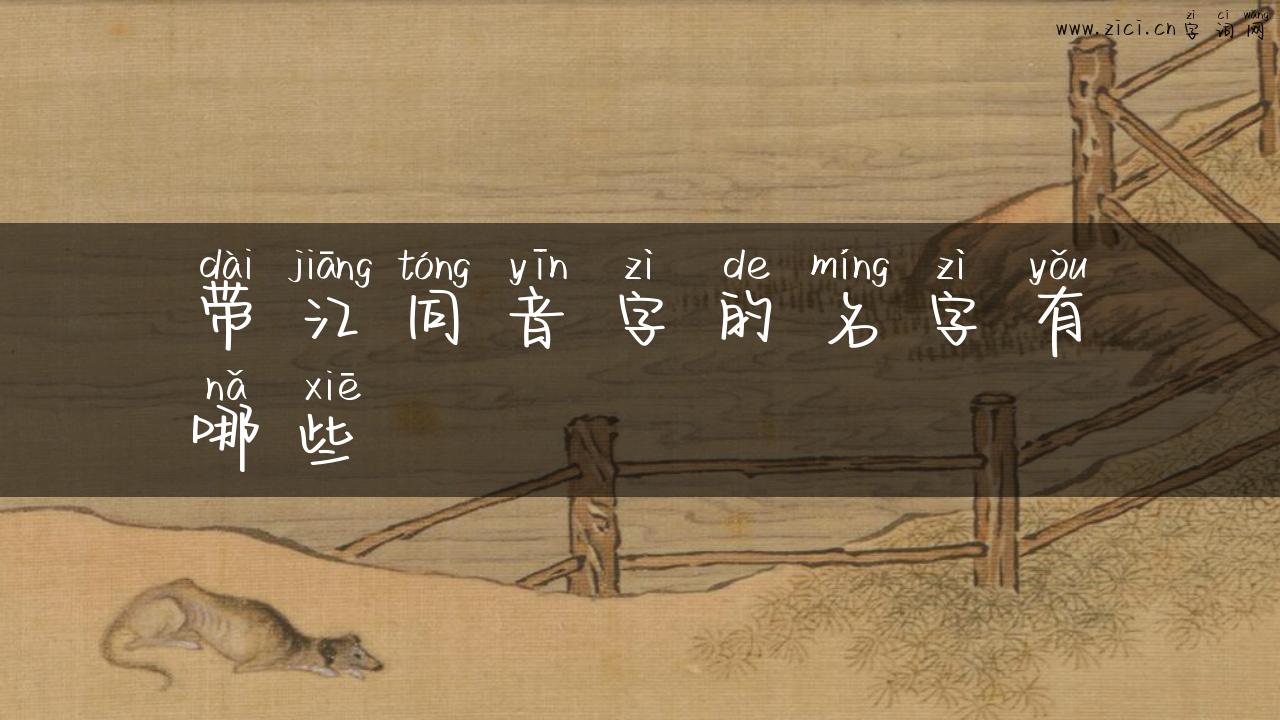 zì cí wǎng
www.zici.cn 字词网
dài jiāng tóng yīn zì de míng zì yǒu
带江同音字的名字有
nǎ xiē
哪些